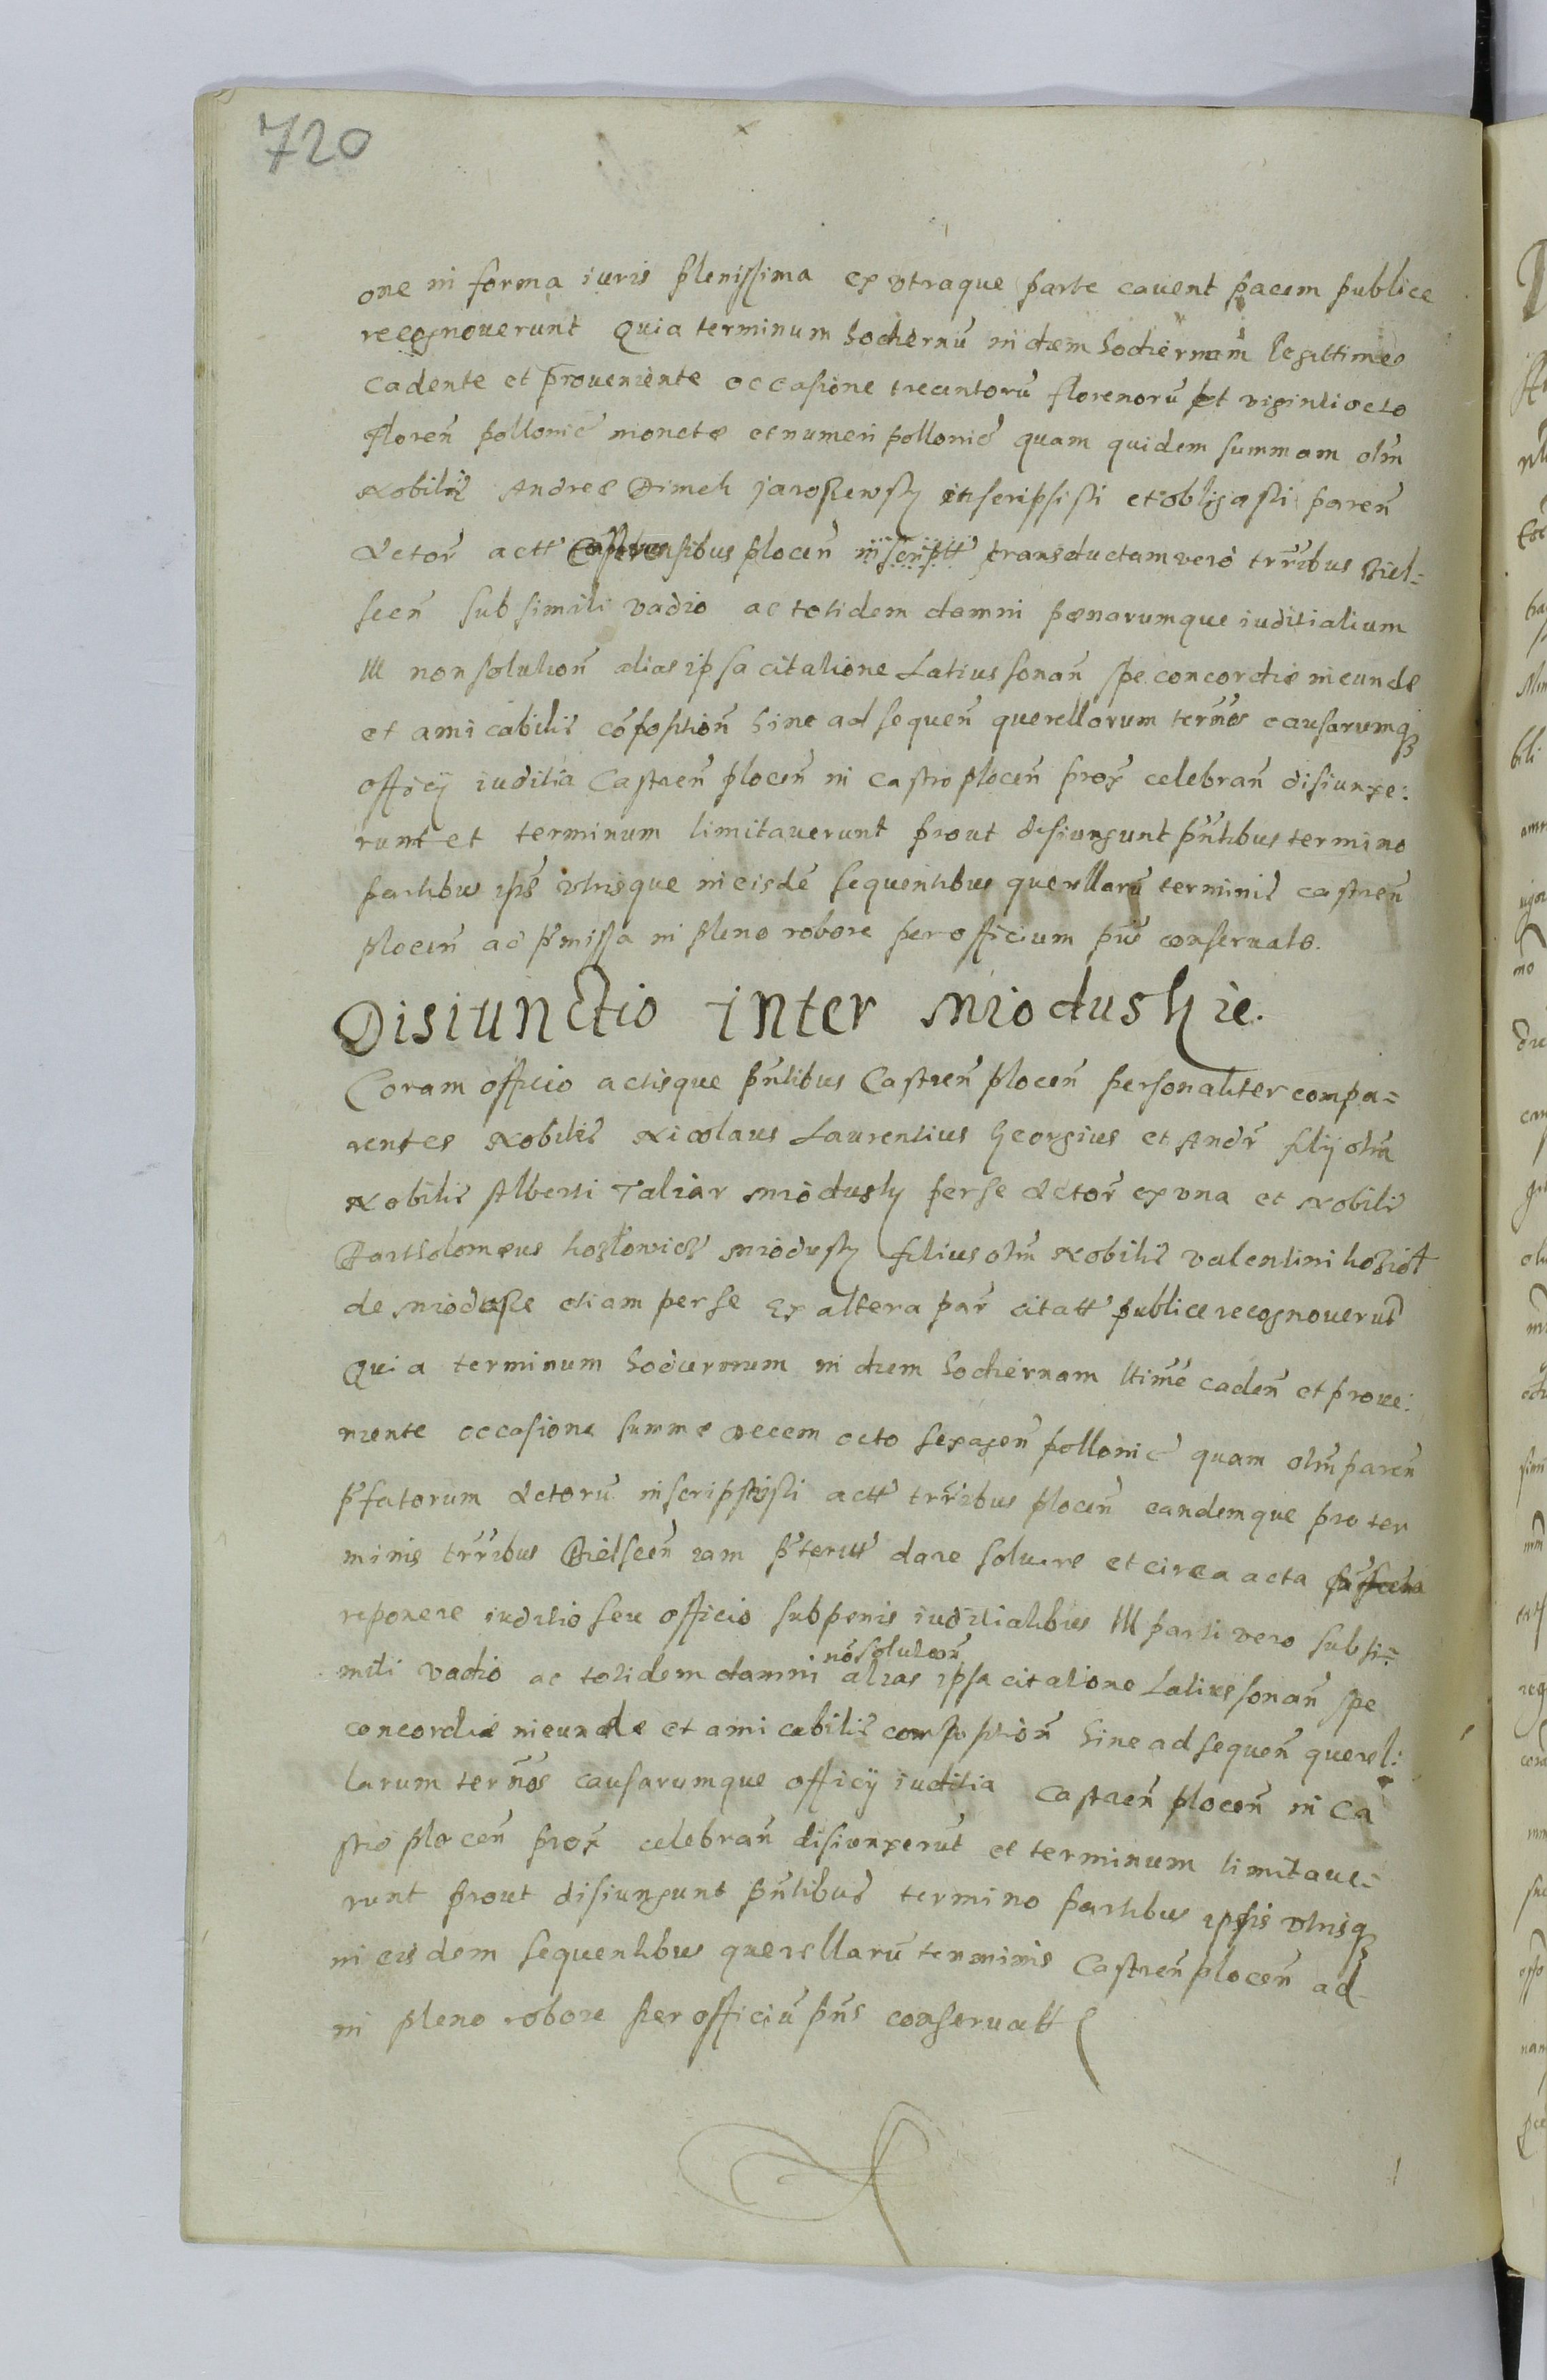 720
one in forma iuris plenissima ex vtraque parte cauent pacem publice
recognouerunt Quia terminum hodiernū in diem hodiernam legittime
cadente et proueniente occasione trecentorū florenorū et viginti octo
floren̄ pollonic̄ monetæ et numeri pollonic̄ quam quidem summam olm̄
Nobilis Andreæ Dimek Jaroszewsky inscripsisti et obligasti paren̄
Actor̄ actt Castrensibus plocen̄ inscriptt transductam vero trr̄ibus Biel=
scen̄ sub simili vadio ac totidem damni pænarumque iuditialium
III non solution̄ alias ipsa citatione Latius sonan̄ spe concordiæ ineundæ
et amicabilis cōpoſition̄ hinc ad sequen̄ querellarum term̄os causarumqȝ
officij iuditia Castren̄ plocen̄ in castro plocen̄ prox̄ celebran̄ disiunxe:
runt et terminum limitauerunt prout disiungunt pn̄tibus termino
partibus ip̄s vtrisque in eisdē sequentibus querellarū terminis castren̄
plocen̄ ad p̄missa in pleno robore per officium pn̄s conseruato.
Disiunctio inter Mioduskie.
Coram officio actisque pn̄tibus Castren̄ plocen̄ personaliter compa=
rentes Nobiles Nicolaus Laurentius Georgius et Andr̄ filij olm̄
Nobilis Alberti Taliar Miodusky per se Actor̄ ex vna et Nobilis
Bartholomæus Miodusky filius olm̄ Nobilis Valentini
de Mioduſze etiam per se Ex altera par̄ citatt publice recognouerūt
Quia terminum hodiernum in diem hodiernam ltime caden̄ et proue:
niente occasione summæ decem octo sexagen̄ pollonic̄ quam olm̄ paren̄
p̄fatorum Actorū inscripsisti actt trr̄ibus plocen̄ eandemque pro ter
minis trr̄ibus Bielscen̄ iam p̄teritt dare soluere et circa acta
reponere iuditio seu officio sub penis iuditialibus III parti vero sub si=
mili vadio ac totidem damni nō solution̄ alias ipsa citatione Latius sonan̄ spe
concordiæ ineundæ et amicabilis composition̄ hinc ad sequen̄ querel:
larum term̄os causarumque officij iuditia Castren̄ plocen̄ in Ca
stro plocen̄ prox̄ celebran̄ disiunxerūt et terminum limitaue=
runt prout disiungunt pn̄tibus termino partibus ipsis vtrisqȝ
in eisdem sequentibus querellarū terminis Castren̄ plocen̄ ad
in pleno robore per officiū pn̄s conseruatt